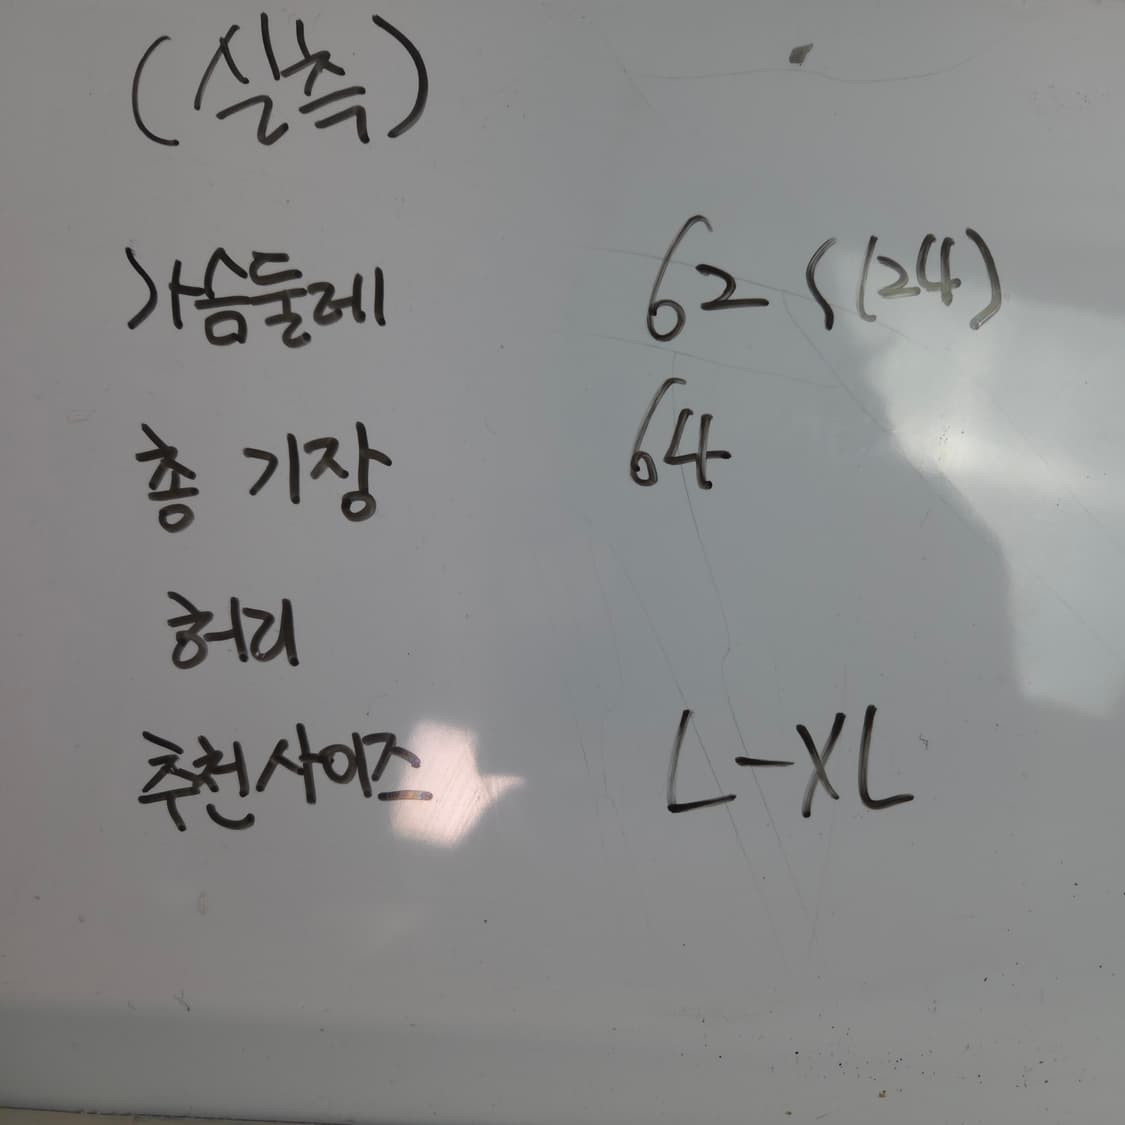 (실측)
가슴둘레 62 - (24)
총 기장 64
허리
추천사이즈 L-XL